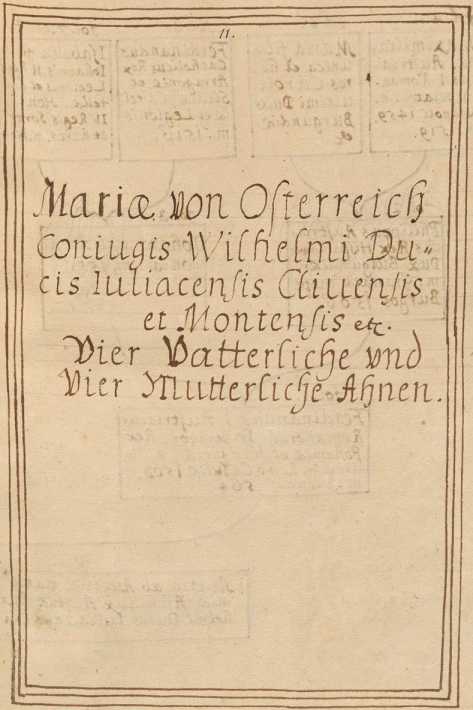 11.
Mariæ von Oſterreich
Coniugis Wilhelmi Du=
cis Iuliacenſis Cliuenſis
et Montenſis etc.
Vier Vatterliche vnd
Vier Mutterliche Ahnen.